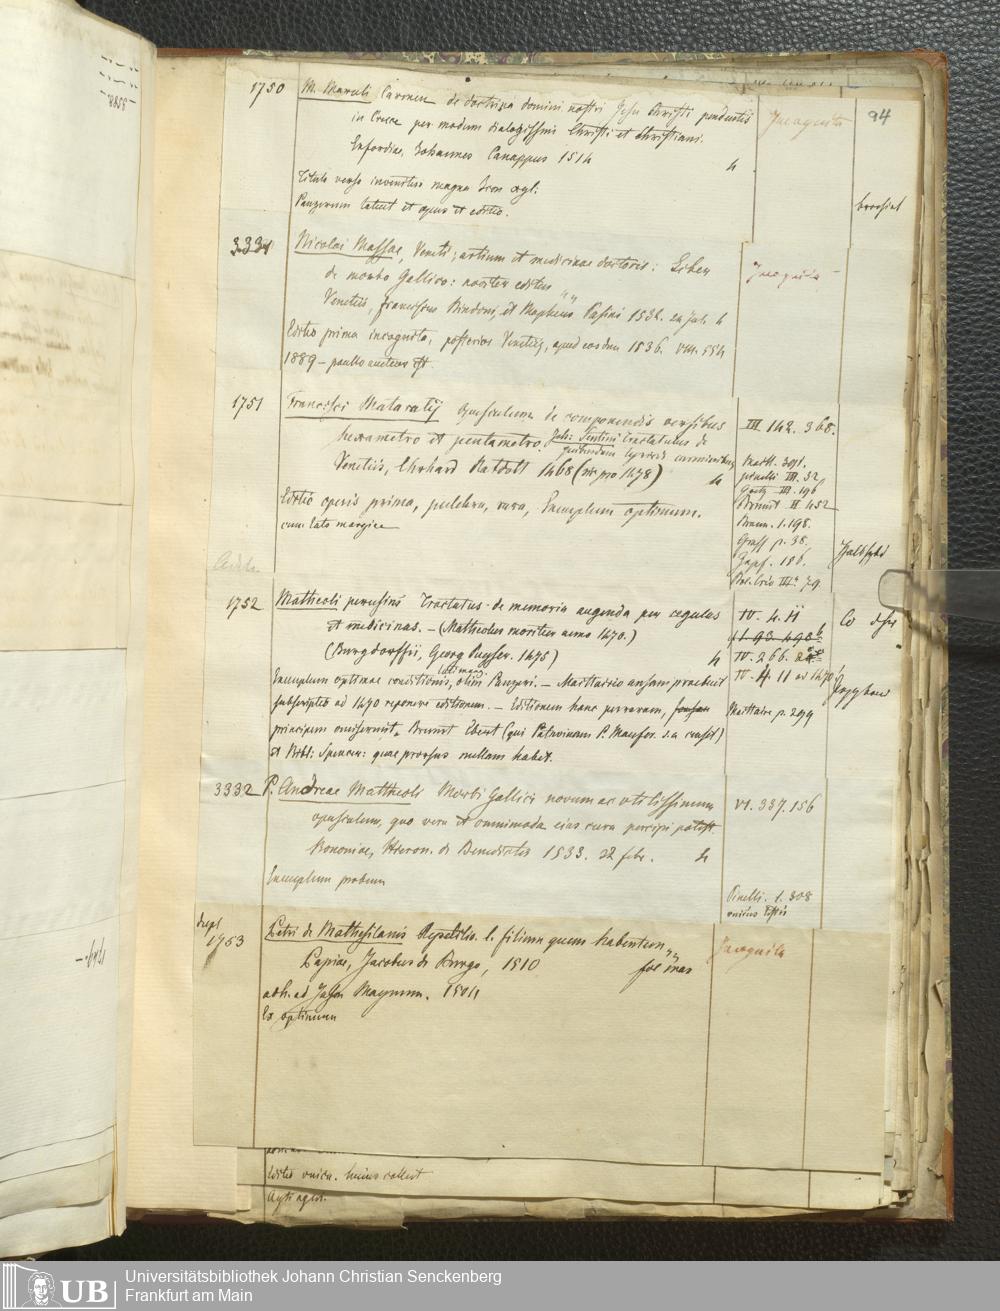 94
1750 M. Maruli Carmen de doctrina domini nostri Jesu Christi pendentis Incognita
in Cruce per modum dialogissimi Christi et Christiani.
Erfordiae, Johannes Canappus 1514 4
Titulo verso invenitur magna Icon xyl:
Panzerum latuit et opus et editio. brochirt
3334 Nicolai Massae, Veneti, artium et medicinae doctoris: Liber Incognita
de morbo Gallico: noviter editus
Venetiis, Franciscus Bindoni, et Mapheus Pasini 1532. 4
Editio prima incognita, posterior Venetiis, apud eosdem 1536.
1889 – paullo auctior est
1751 Francisci Mataratij Opusculum de componendis versibus III 142. 368.
hexametro et pentametro. Joh: Sentini tractatulus de
quibusdam lyricis carminibus
Venetiis, Ehrhard Ratdolt 1468 (sic pro 1478) 4
Maitt. 391.
Pinelli III. 32
Goetz III. 196
Editio operis prima, pulchra, rara, Exemplum optimum.
Brunet II 452
cum lato margine
Braun. 1. 198.
p. 38.
Zapf. 186.
79.
1752 Matheoli perusini Tractatus de memoria augenda per regulas IV. 4. 11
et medicinas. – (Matheolus moritur anno 1470.)
(Burgdorffii, Georg 1475) 4 IV. 266.
Exemplum optimae conditionis, olim Panzeri. – Maittairio ansam praebuit IV. 4. 11 ad 1470
subscriptio ad 1470 reponere editionem. – Editionem hanc perraram, Maittaire p. 299
principem omiserunt Brunet Ebert (qui Patavinam P. Maufer. s.a. censet)
et Bibl: Spencer: quae prorsus nullam habet.
3332 P. Andreae Mattheoli Morbi Gallici novum ac utilissimum VI. 337. 156
opusculum, quo vera et omnimoda eius cura percipi potest
Bononiae, Hieron. de Benedictis 1533. 22 febr. 4
Exemplum probum
Pinelli. 1. 308
unicus testis
1753 Petri de Mathesilanis Repetitio l. filium quem habentem Incognita
Papiae, Jacobus de Burgo, 1510 fol max
adh. ad Jason Maynum. 1504
Ex optimum
Editio unica.
Universitätsbibliothek Johann Christian Senckenberg
Frankfurt am Main
UB